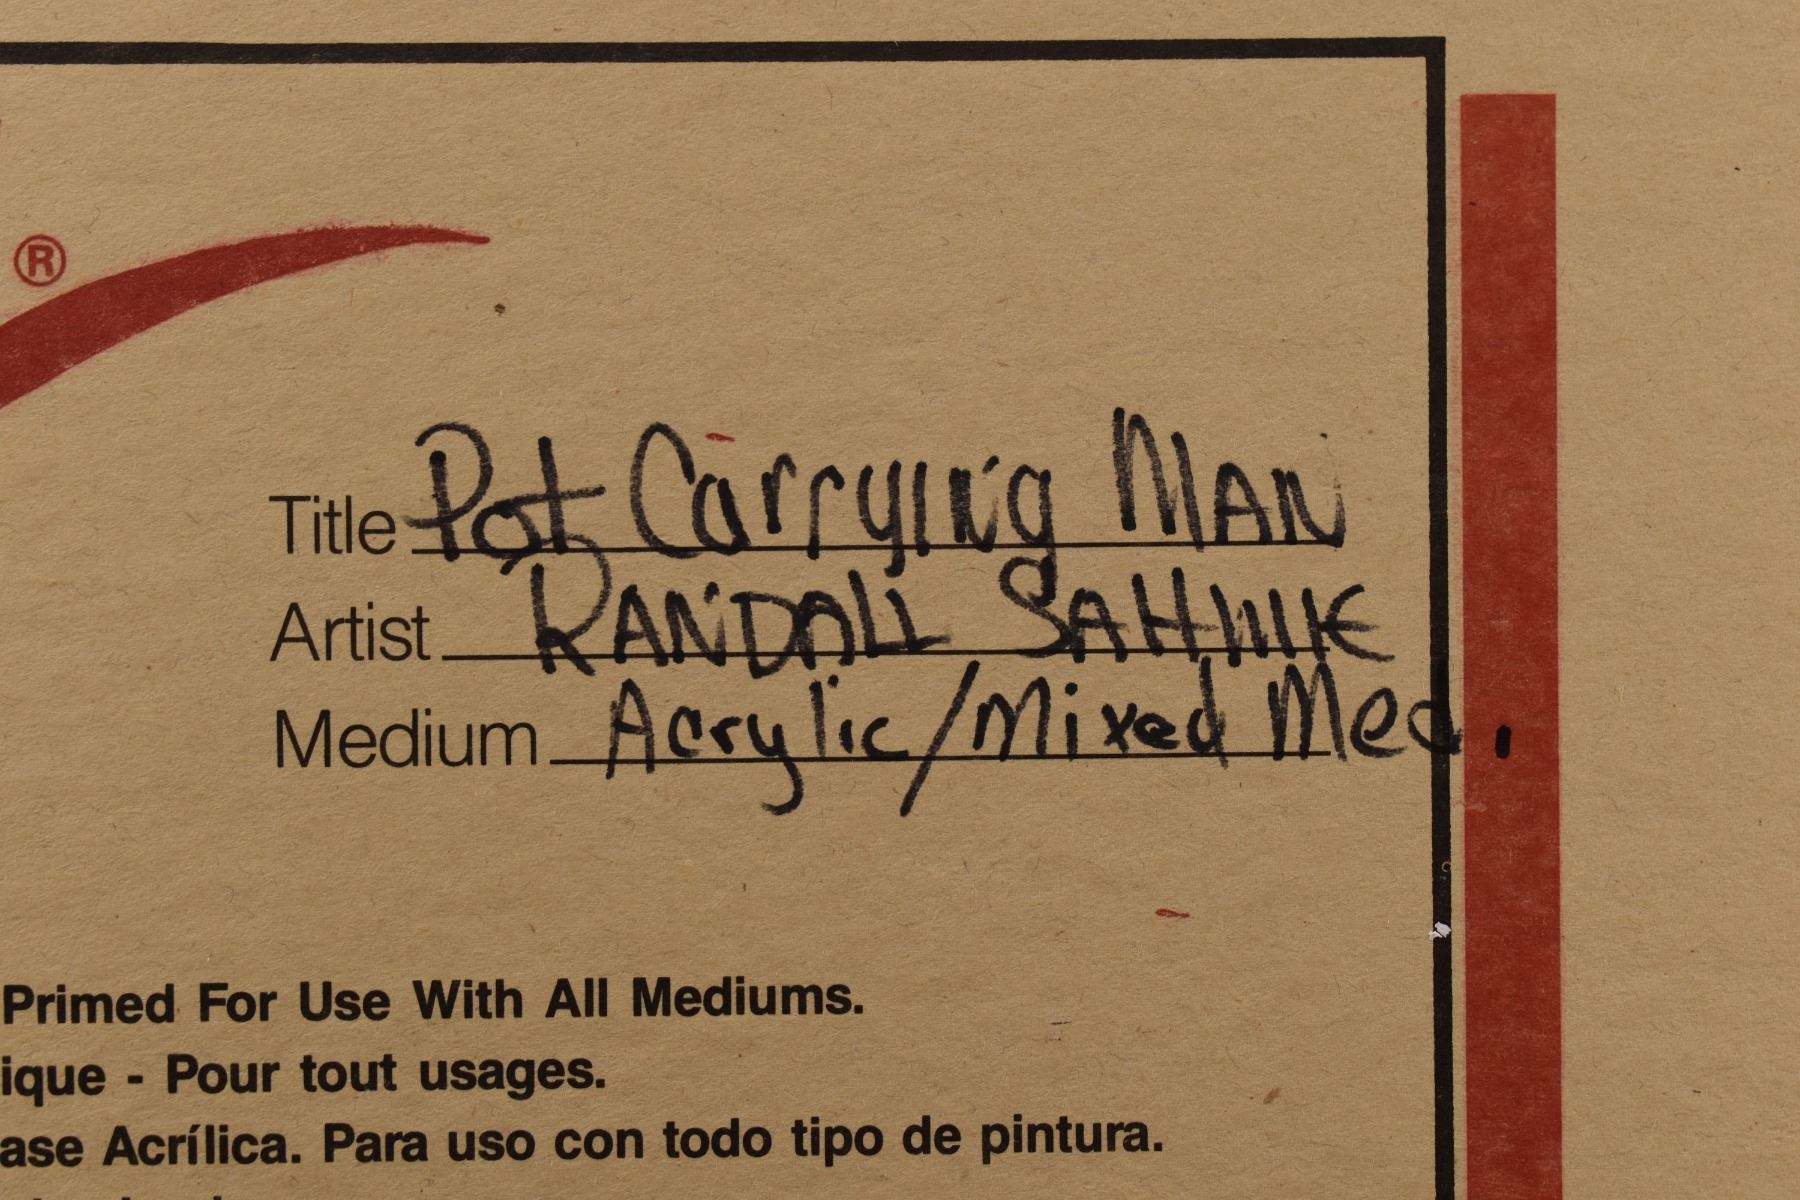 ®
Title Pot Carrying MAN
Artist RANDALL
Medium Acrylic/Mixed Med.
Primed For Use With All Mediums.
ique - Pour tout usages.
ase Acrílica. Para uso con todo tipo de pintura.